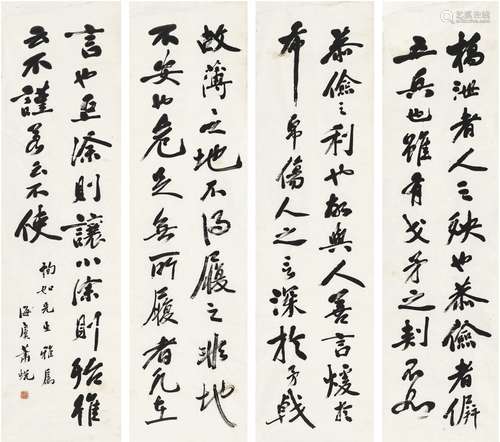 橋泄者人之殃也恭儉者偋
五兵也雖有戈矛之刺不如
恭儉之利也故與人善言煖於
布帛傷人之言深於矛戟
故薄之地不得履之非地
不安也危足無所履者凡在
言也巨涂則讓小涂則殆雖
云不謹若云不使
如先生雅屬
海虞蕭蛻
艺狐在线